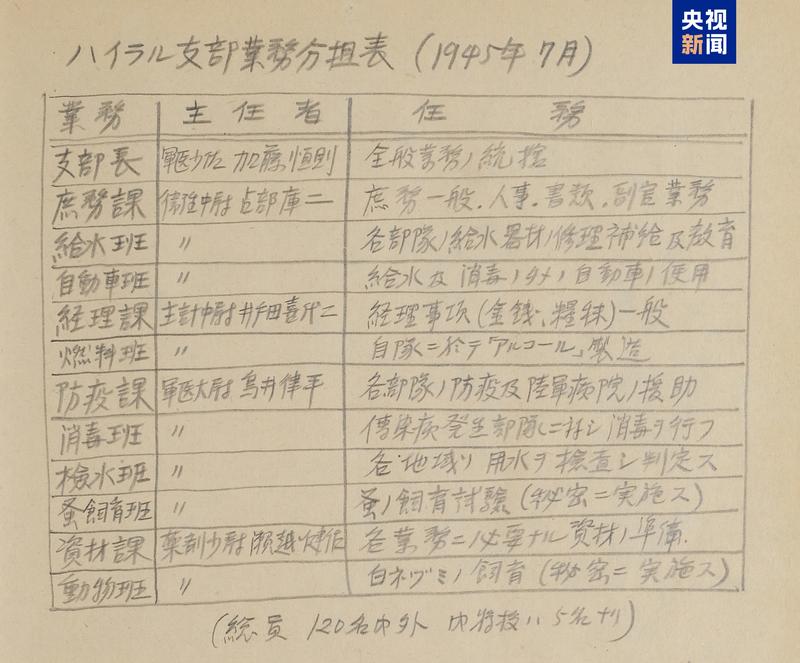 央视
新闻
ハイラル支部業務分担表 (1945年7月)
業務 主任者 任務
支部長 軍医少佐 加藤恒則 全般業務ノ統括
庶務課 衛准中尉 占部庫二 庶務一般.人事.書類.副官業務
給水班 〃 各部隊ノ給水器材ノ修理補給及教育
自動車班 〃 給水及消毒ノタメノ自動車ノ使用
経理課 主計中尉 井田喜代二 経理事項(金銭、糧秣)一般
燃料班 〃 自隊ニ於テ「アルコール」製造
防疫課 軍医大尉 鳥井律平 各部隊ノ防疫及陸軍病院ノ援助
消毒班 〃 傳染病発生部隊ニ対シ消毒ヲ行フ
檢水班 〃 各地域ノ用水ヲ検査シ判定ス
蚤飼育班 〃 蚤ノ飼育試験(秘密ニ実施ス)
資材課 薬剤少尉 瀬越健 各業務ニ必要ナル資材ノ準備.
動物班 〃 白ネヅミノ飼育(秘密ニ実施ス)
(総員 120名内外 内将校ハ5名ナリ)